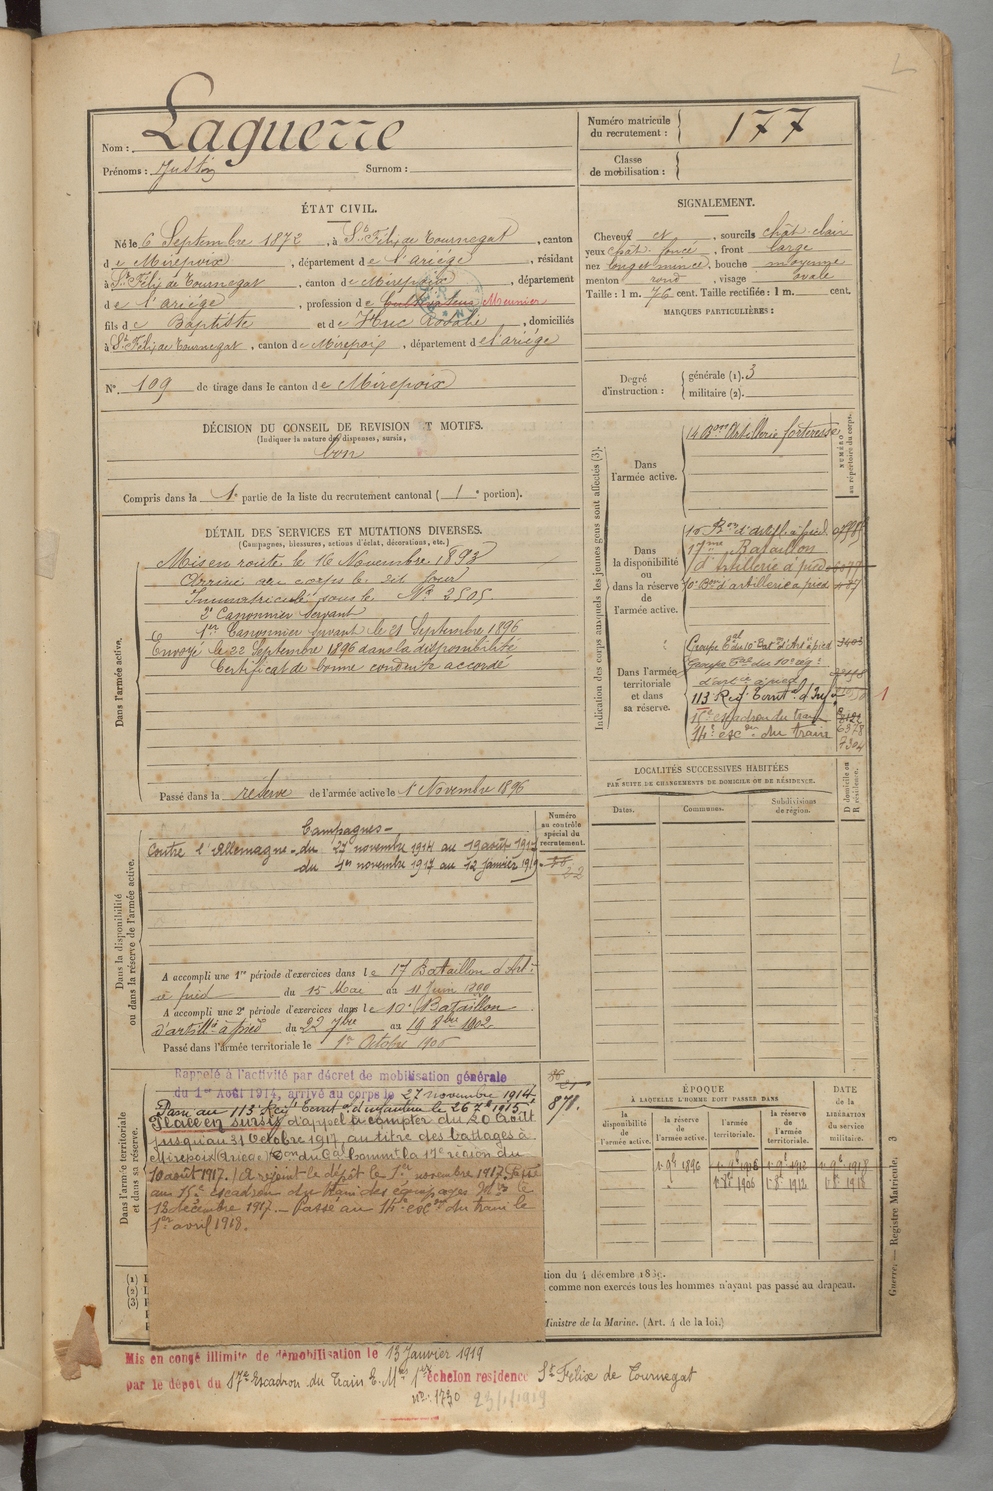 Nom : Laguerre
Prénoms : Justin Surnom :
Numéro matricule du recrutement : 177
Classe de mobilisation :
ÉTAT CIVIL.
Né le 6 Septembre 1872, à St Félix de Tournegat, canton
de Mirepoix, département de l'ariége, résidant
à St Félix de Tournegat, canton de Mirepoix, département
de l'ariége, profession de cultivateur Meunier
fils de Baptiste et de Huc Rosalie, domiciliés
à St Félix de Tournegat, canton de Mirepoix, département de l'ariége
N° 109 de tirage dans le canton de Mirepoix
SIGNALEMENT.
Cheveux et, sourcils chât. clair
yeux chât. foncé, front large
nez long et mince, bouche moyenne
menton rond, visage ovale
Taille : 1 m. 76 cent. Taille rectifiée : 1 m. cent.
MARQUES PARTICULIÈRES :
Degré d'instruction : générale (1). 3
militaire (2).
DÉCISION DU CONSEIL DE REVISION ET MOTIFS.
(Indiquer la nature des dispenses, sursis,
bon
Compris dans la 1e partie de la liste du recrutement cantonal (1e portion).
DÉTAIL DES SERVICES ET MUTATIONS DIVERSES.
(Campagnes, blessures, actions d'éclat, décorations, etc.)
Dans l'armée active.
Mis en route le 16 Novembre 1893
Arrivé au corps le dit jour
Immatriculé sous le N° 2505
2e Canonnier servant
1er Canonnier servant le 21 Septembre 1896
Envoyé le 22 Septembre 1896 dans la disponibilité
Certificat de bonne conduite accordé
Passé dans la réserve de l'armée active le 1er Novembre 1896
Indication des corps auxquels les jeunes gens sont affectés (3).
NUMÉRO au répertoire du corps.
Dans l'armée active.
14 Bon Artillerie forteresse
Dans la disponibilité ou dans la réserve de l'armée active.
10 Bon d'artil. à pied
17me Bataillon
d'Artillerie à pied
10e Bon d'artillerie à pied
Dans l'armée territoriale et dans sa réserve.
Groupe Teal du 10e Baton d'Art à pied
Groupe Teal du 10e rég.
d'artie à pied
113 Reg. Territ. d'Inf. 1
15e escadron du train
14e escon du train 7304
LOCALITÉS SUCCESSIVES HABITÉES
PAR SUITE DE CHANGEMENTS DE DOMICILE OU DE RÉSIDENCE.
Dates. Communes. Subdivisions de région. D domicile ou R résidence.
Dans la disponibilité ou dans la réserve de l'armée active.
Numéro au contrôle spécial du recrutement.
Campagnes
Contre l'Allemagne du 27 novembre 1914 au 19 août 1917
du 1er novembre 1917 au 12 janvier 1919
22
A accompli une 1re période d'exercices dans le 17 Bataillon d'Art.
à pied du 15 Mai au 11 Juin 1900
A accompli une 2e période d'exercices dans le 10e Bataillon
d'artillie à pied du 22 7bre au 19 8bre 1902
Passé dans l'armée territoriale le 1er Octobre 1906
Dans l'armée territoriale et dans sa réserve.
Rappelé à l'activité par décret de mobilisation générale
du 1er Août 1914, arrivé au corps le 27 novembre 1914.
Passé au 113 Regt Territ d'infanterie le 26 7bre 1915
Placé en sursis d'appel à compter du 20 Août
jusqu'au 31 Octobre 1917, au titre des battages à
Mirepoix (Ariège) Don du Gal Commt la 17e région du
10 août 1917. A rejoint le dépôt le 1er novembre 1917. Passé
au 15e escadron du train des équipages Mres le
12 décembre 1917. — Passé au 14e escon du train le
1er avril 1918.
878.
ÉPOQUE
À LAQUELLE L'HOMME DOIT PASSER DANS
la disponibilité de l'armée active. la réserve de l'armée active. l'armée territoriale. la réserve de l'armée territoriale.
DATE de la LIBÉRATION du service militaire.
1er 9b 1896
1er 8b 1906 1er 8b 1912 1er 8b 1918
(1)
(2)
(3)
tion du 4 décembre 1889.
comme non exercés tous les hommes n'ayant pas passé au drapeau.
Ministre de la Marine. (Art. 4 de la loi.)
Guerre. — Registre Matricule. 3
Mis en congé illimité de démobilisation le 13 Janvier 1919
par le dépôt du 17e Escadron du Train E. Mres 1er échelon residence St Felix de Tournegat
n° : 1730 23/1/1919